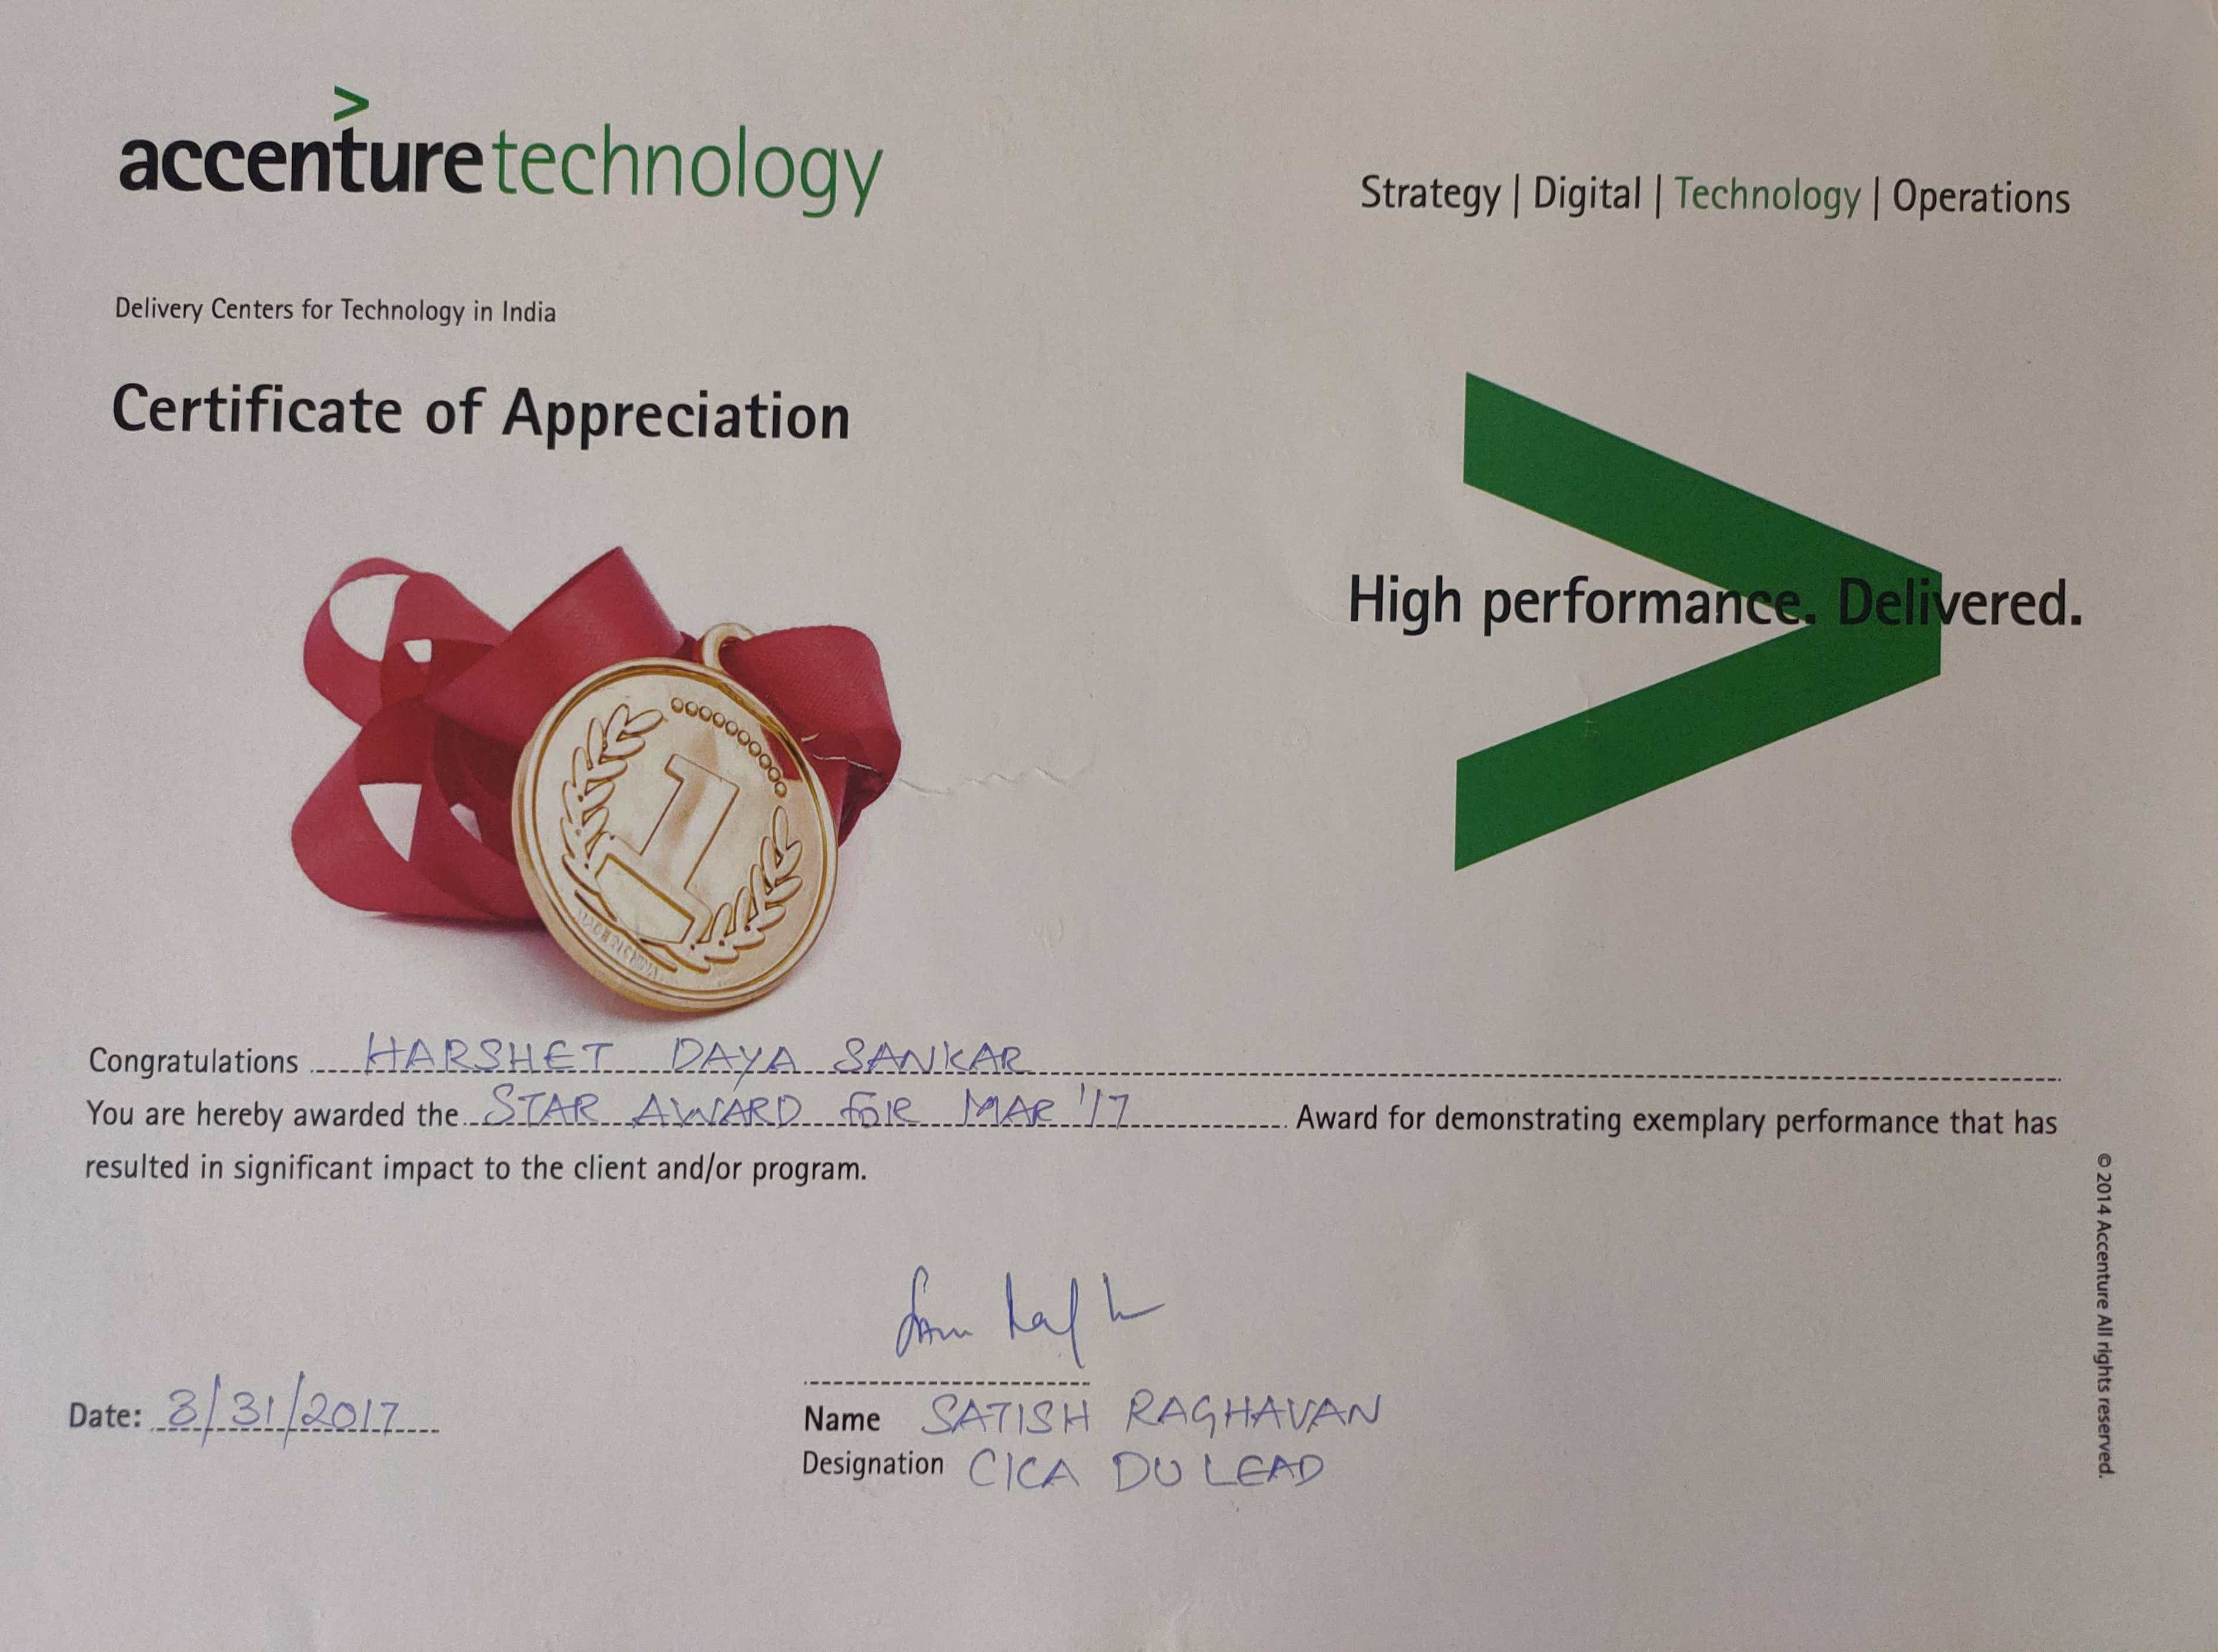 >
accenturetechnology
Strategy | Digital | Technology | Operations
Delivery Centers for Technology in India
Certificate of Appreciation
High performance. Delivered.
1
Congratulations HARSHET DAYA SANKAR
You are hereby awarded the STAR AWARD FOR MAR '17 Award for demonstrating exemplary performance that has
resulted in significant impact to the client and/or program.
© 2014 Accenture All rights reserved.
Date: 3/31/2017
Name SATISH RAGHAVAN
Designation CICA DU LEAD